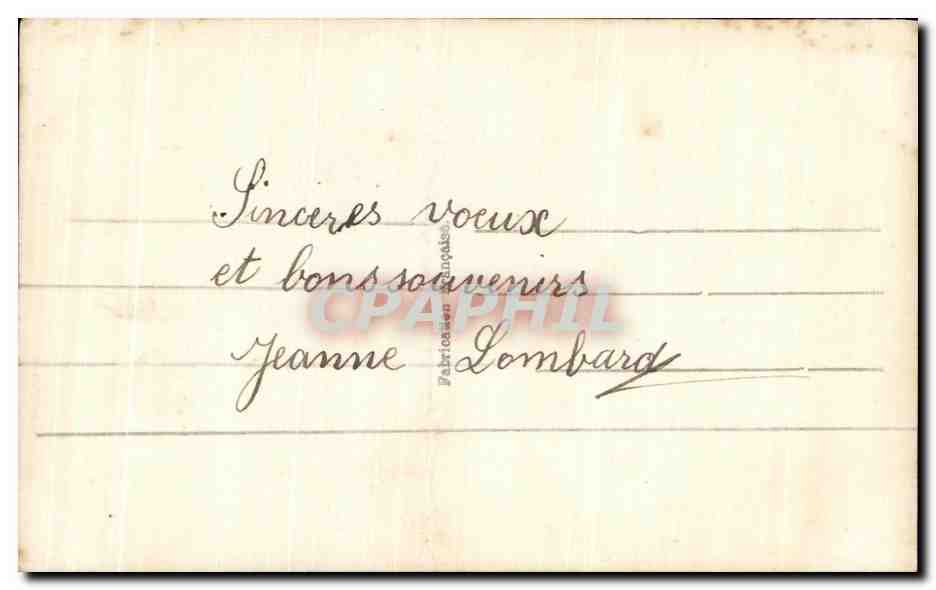 Sinceres voeux
et bons souvenirs
Jeanne Lombard
Fabrication Française.
CPAPHIL